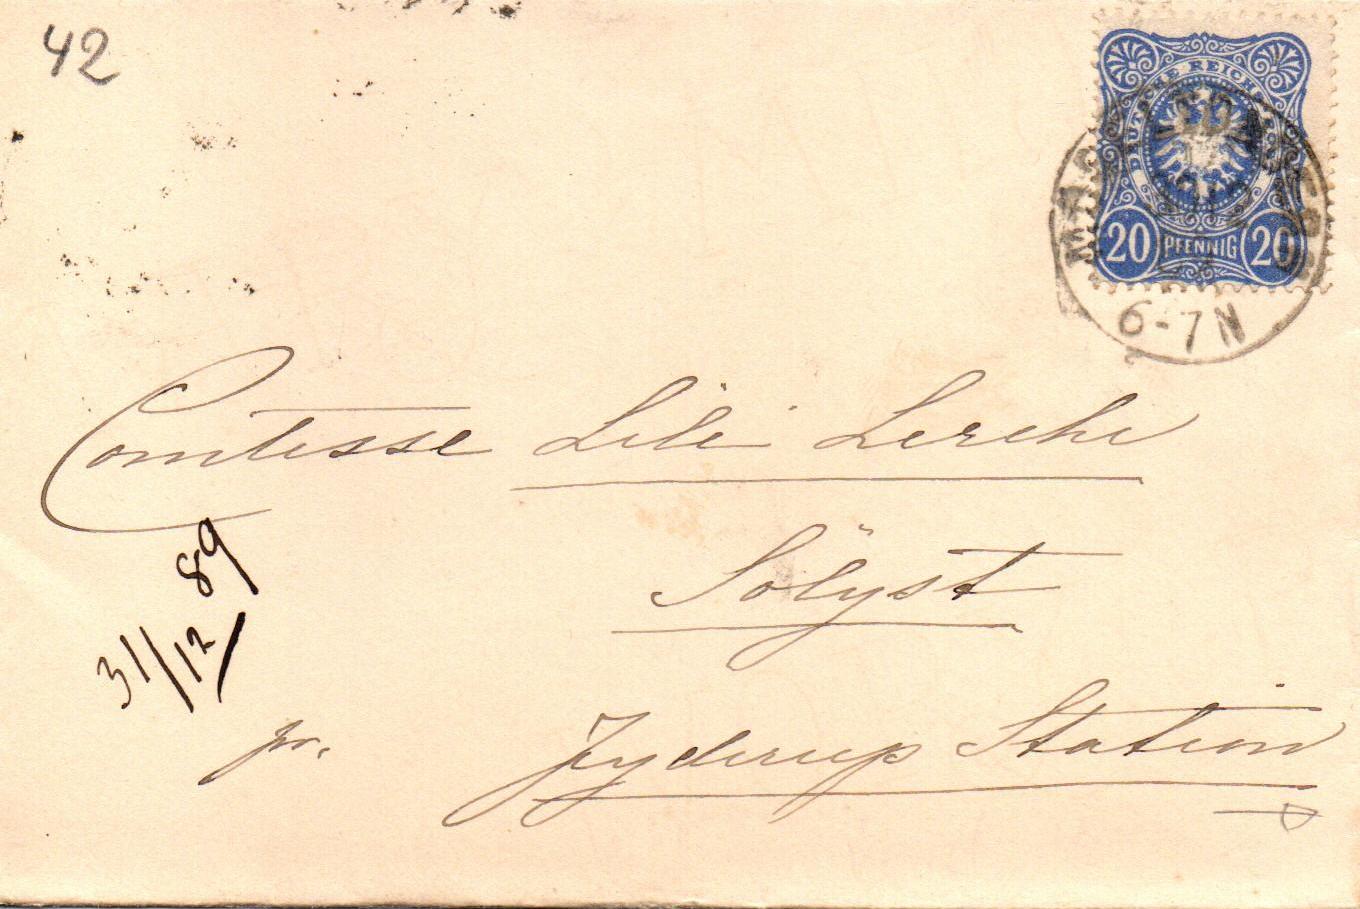 42
DEUTSCHE REICHS-POST
20 PFENNIG 20
6-7N
Comtesse Lili Lerche
Sölyst
31/12 89
pr. Jyderup Station